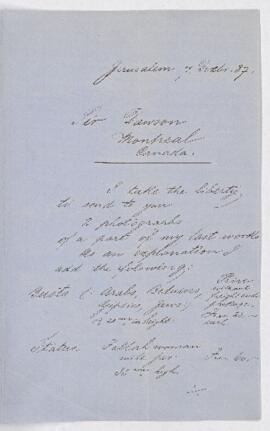 Jerusalem 7. Decbr. 87.
Sir Dawson
Montreal
Canada.
I take the liberty
to send to you
2 photographs
of a part of my last works
As an explanation I
add the following:
Busts (: Arabs, Beduins, Price
without
Gypsies, Jews:)
in height.
Statue Fellah woman
high.